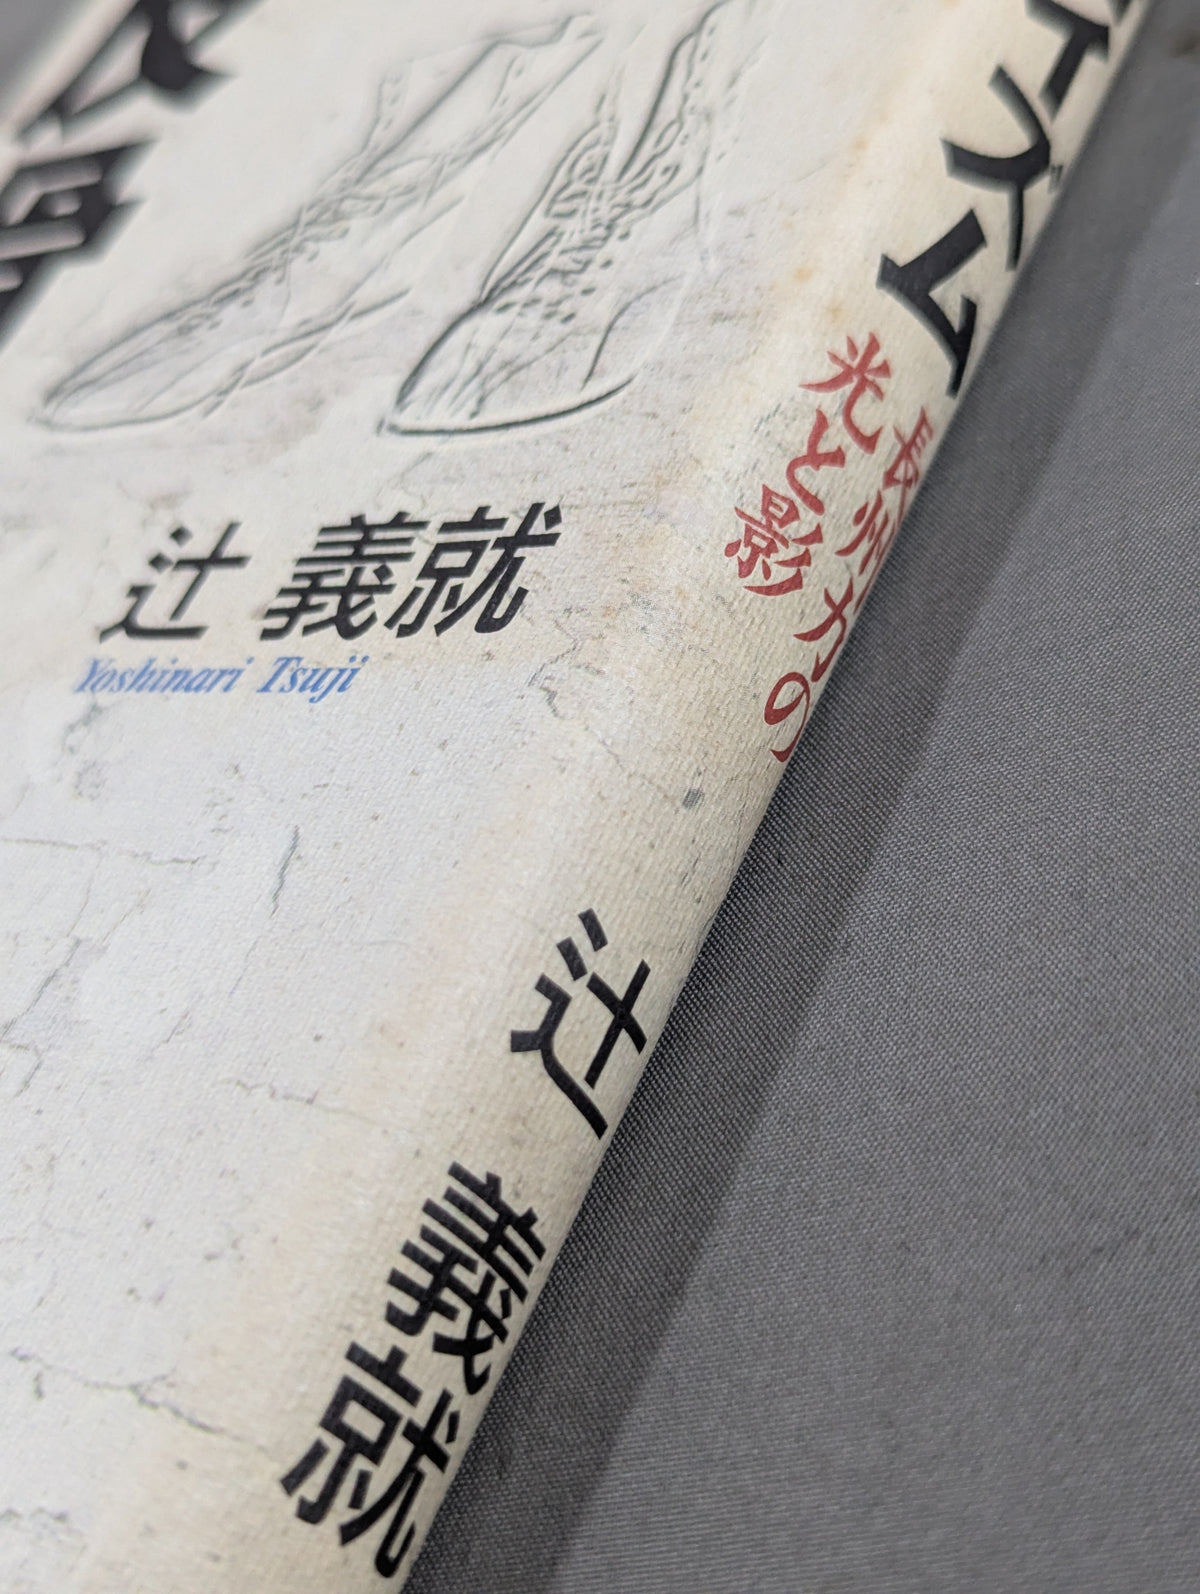 辻 義就
Yoshinari Tsuji
イズム
長州力の
光と影
辻 義就